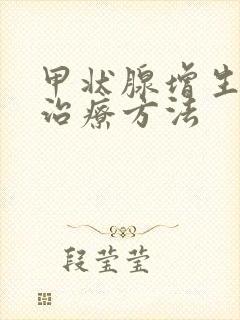 甲状腺增生
治疗方法
段莹莹